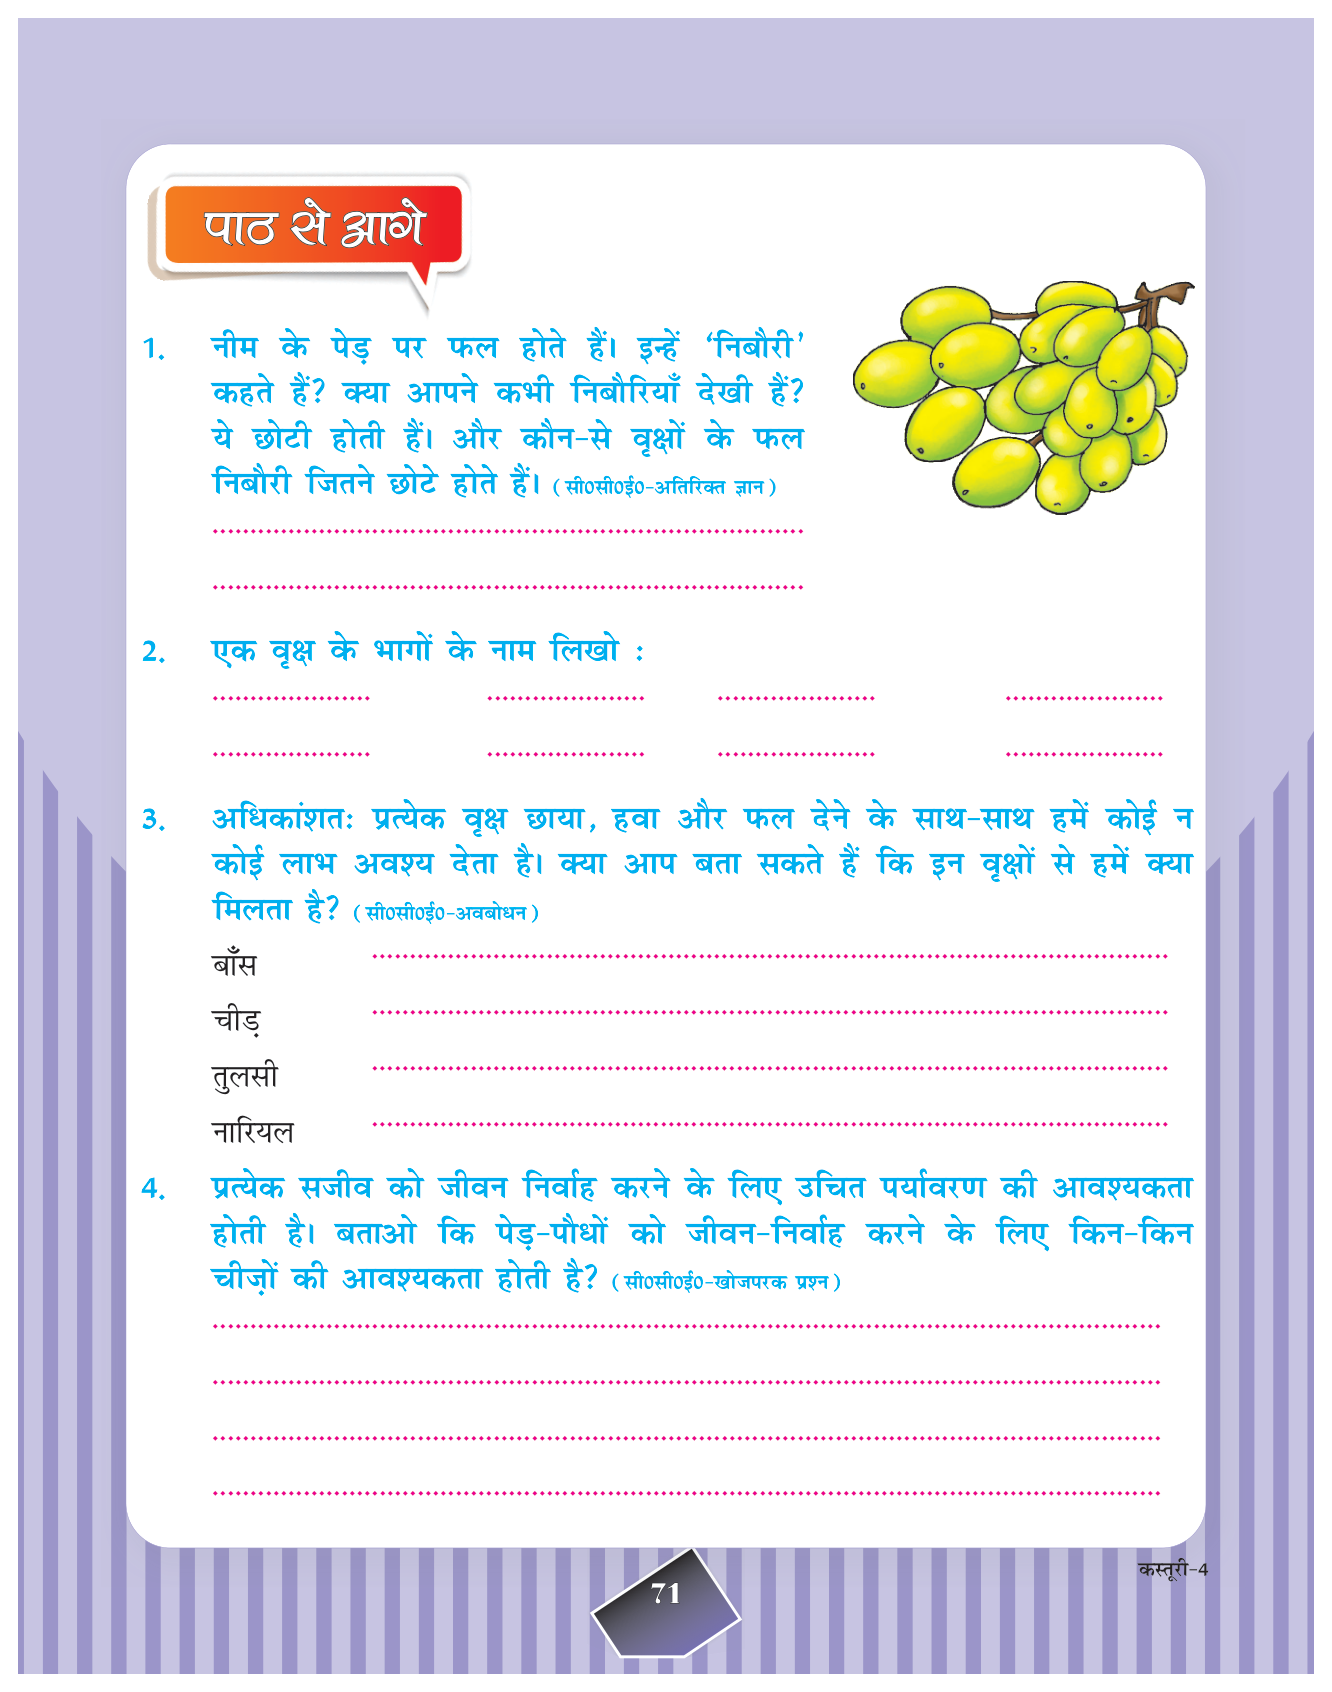 पाठ से आगे
1. नीम के पेड़ पर फल होते हैं। इन्हें ‘निबौरी’
कहते हैं? क्या आपने कभी निबौरियाँ देखी हैं?
ये छोटी होती हैं। और कौन-से वृक्षों के फल
निबौरी जितने छोटे होते हैं। (सी0सी0ई0-अतिरिक्त ज्ञान)
2. एक वृक्ष के भागों के नाम लिखो :
3. अधिकांशतः प्रत्येक वृक्ष छाया, हवा और फल देने के साथ-साथ हमें कोई न
कोई लाभ अवश्य देता है। क्या आप बता सकते हैं कि इन वृक्षों से हमें क्या
मिलता है? (सी0सी0ई0-अवबोधन)
बाँस
चीड़
तुलसी
नारियल
4. प्रत्येक सजीव को जीवन निर्वाह करने के लिए उचित पर्यावरण की आवश्यकता
होती है। बताओ कि पेड़-पौधों को जीवन-निर्वाह करने के लिए किन-किन
चीज़ों की आवश्यकता होती है? (सी0सी0ई0-खोजपरक प्रश्न)
कस्तूरी-4
71